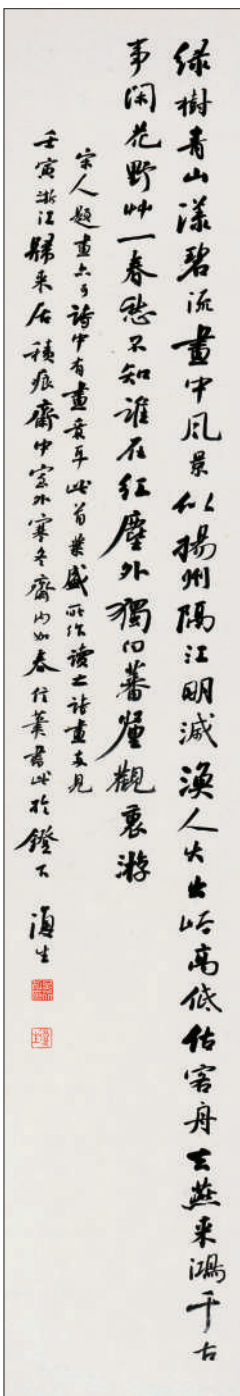 緑樹青山漾碧流畫中風景似揚州隔江明滅漁人火出峪高低估客舟去燕來鴻千古
事闲花野艸一春愁不知誰在红塵外獨向蕃釐觀裏游
宋人題畫亦多詩中有畫意耳此首葉盛所作讀之詩畫見
壬寅浙江歸來居積痕齋中室外寒冬齋内如春信筆書此於鐙下 生